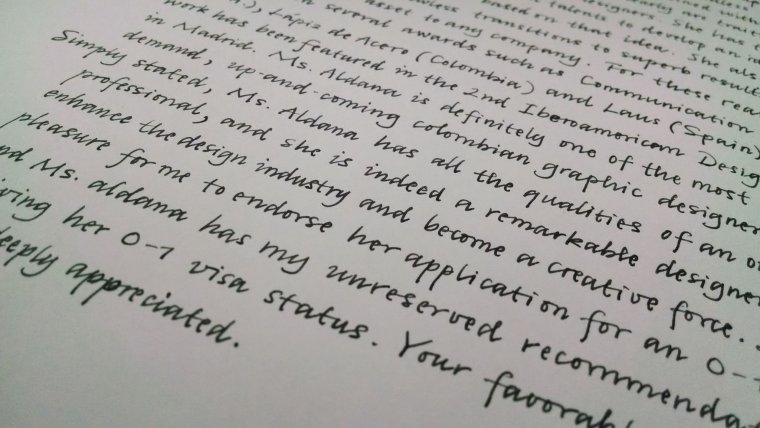 designers. She has
are trait
talents to develop an
based on that idea. She als
transitions to superb result
asset to any company. For these rea
several awards such as Communication
Lápiz de Acero (Colombia) and Laus (Spain)
work has been featured in the 2nd Iberoamerican Desig
in Madrid. Ms. Aldana is definitely one of the most
demand, up-and-coming colombian graphic designer
Simply stated, Ms. Aldana has all the qualities of an
professional, and she is indeed a remarkable designer
enhance the design industry and become a creative force.
pleasure for me to endorse her application for an O-1
Ms. aldana has my unreserved recommendat
her O-1 visa status. Your favorab
deeply appreciated.